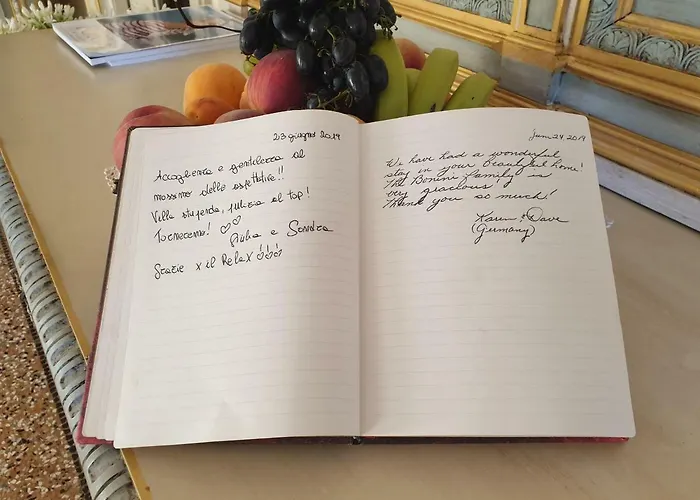 23 giugno 2019
Accoglienza e gentilezza al
massimo delle aspettative!!
Villa stupenda, pulizia al top!
Torneremo!
Giulia e Sandra
Grazie x il Relax
June 24, 2019
We have had a wonderful
stay in your beautiful home!
The Bonini Family is
very gracious!
Thank you so much!
Karen & Dave
(Germany)